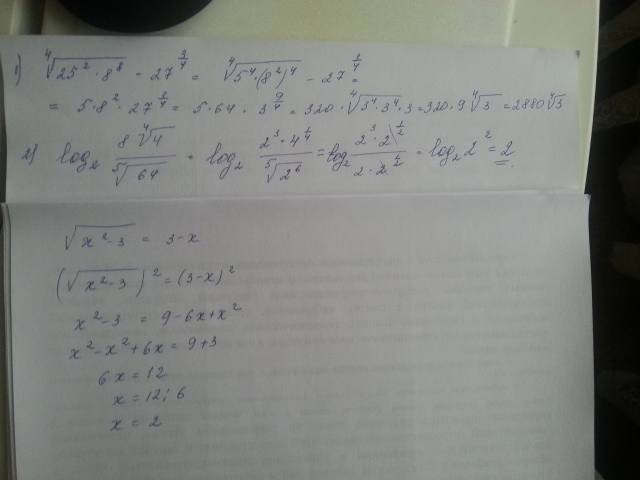 1) ⁴√(25² · 8⁸) - 27^(3/4) = ⁴√(5⁴ · (8²)⁴) - 27^(3/4) =
= 5 · 8² · 27^(3/4) = 5 · 64 · 3^(9/4) = 320 · ⁴√(3⁴ · 3⁴ · 3) = 320 · 9 ⁴√3 = 2880 ⁴√3
2) log₂ (8 ⁴√4)/(⁵√64) = log₂
√(x² - 3) = 3 - x
(√(x² - 3))² = (3 - x)²
x² - 3 = 9 - 6x + x²
x² - x² + 6x = 9 + 3
6x = 12
x = 12 : 6
x = 2